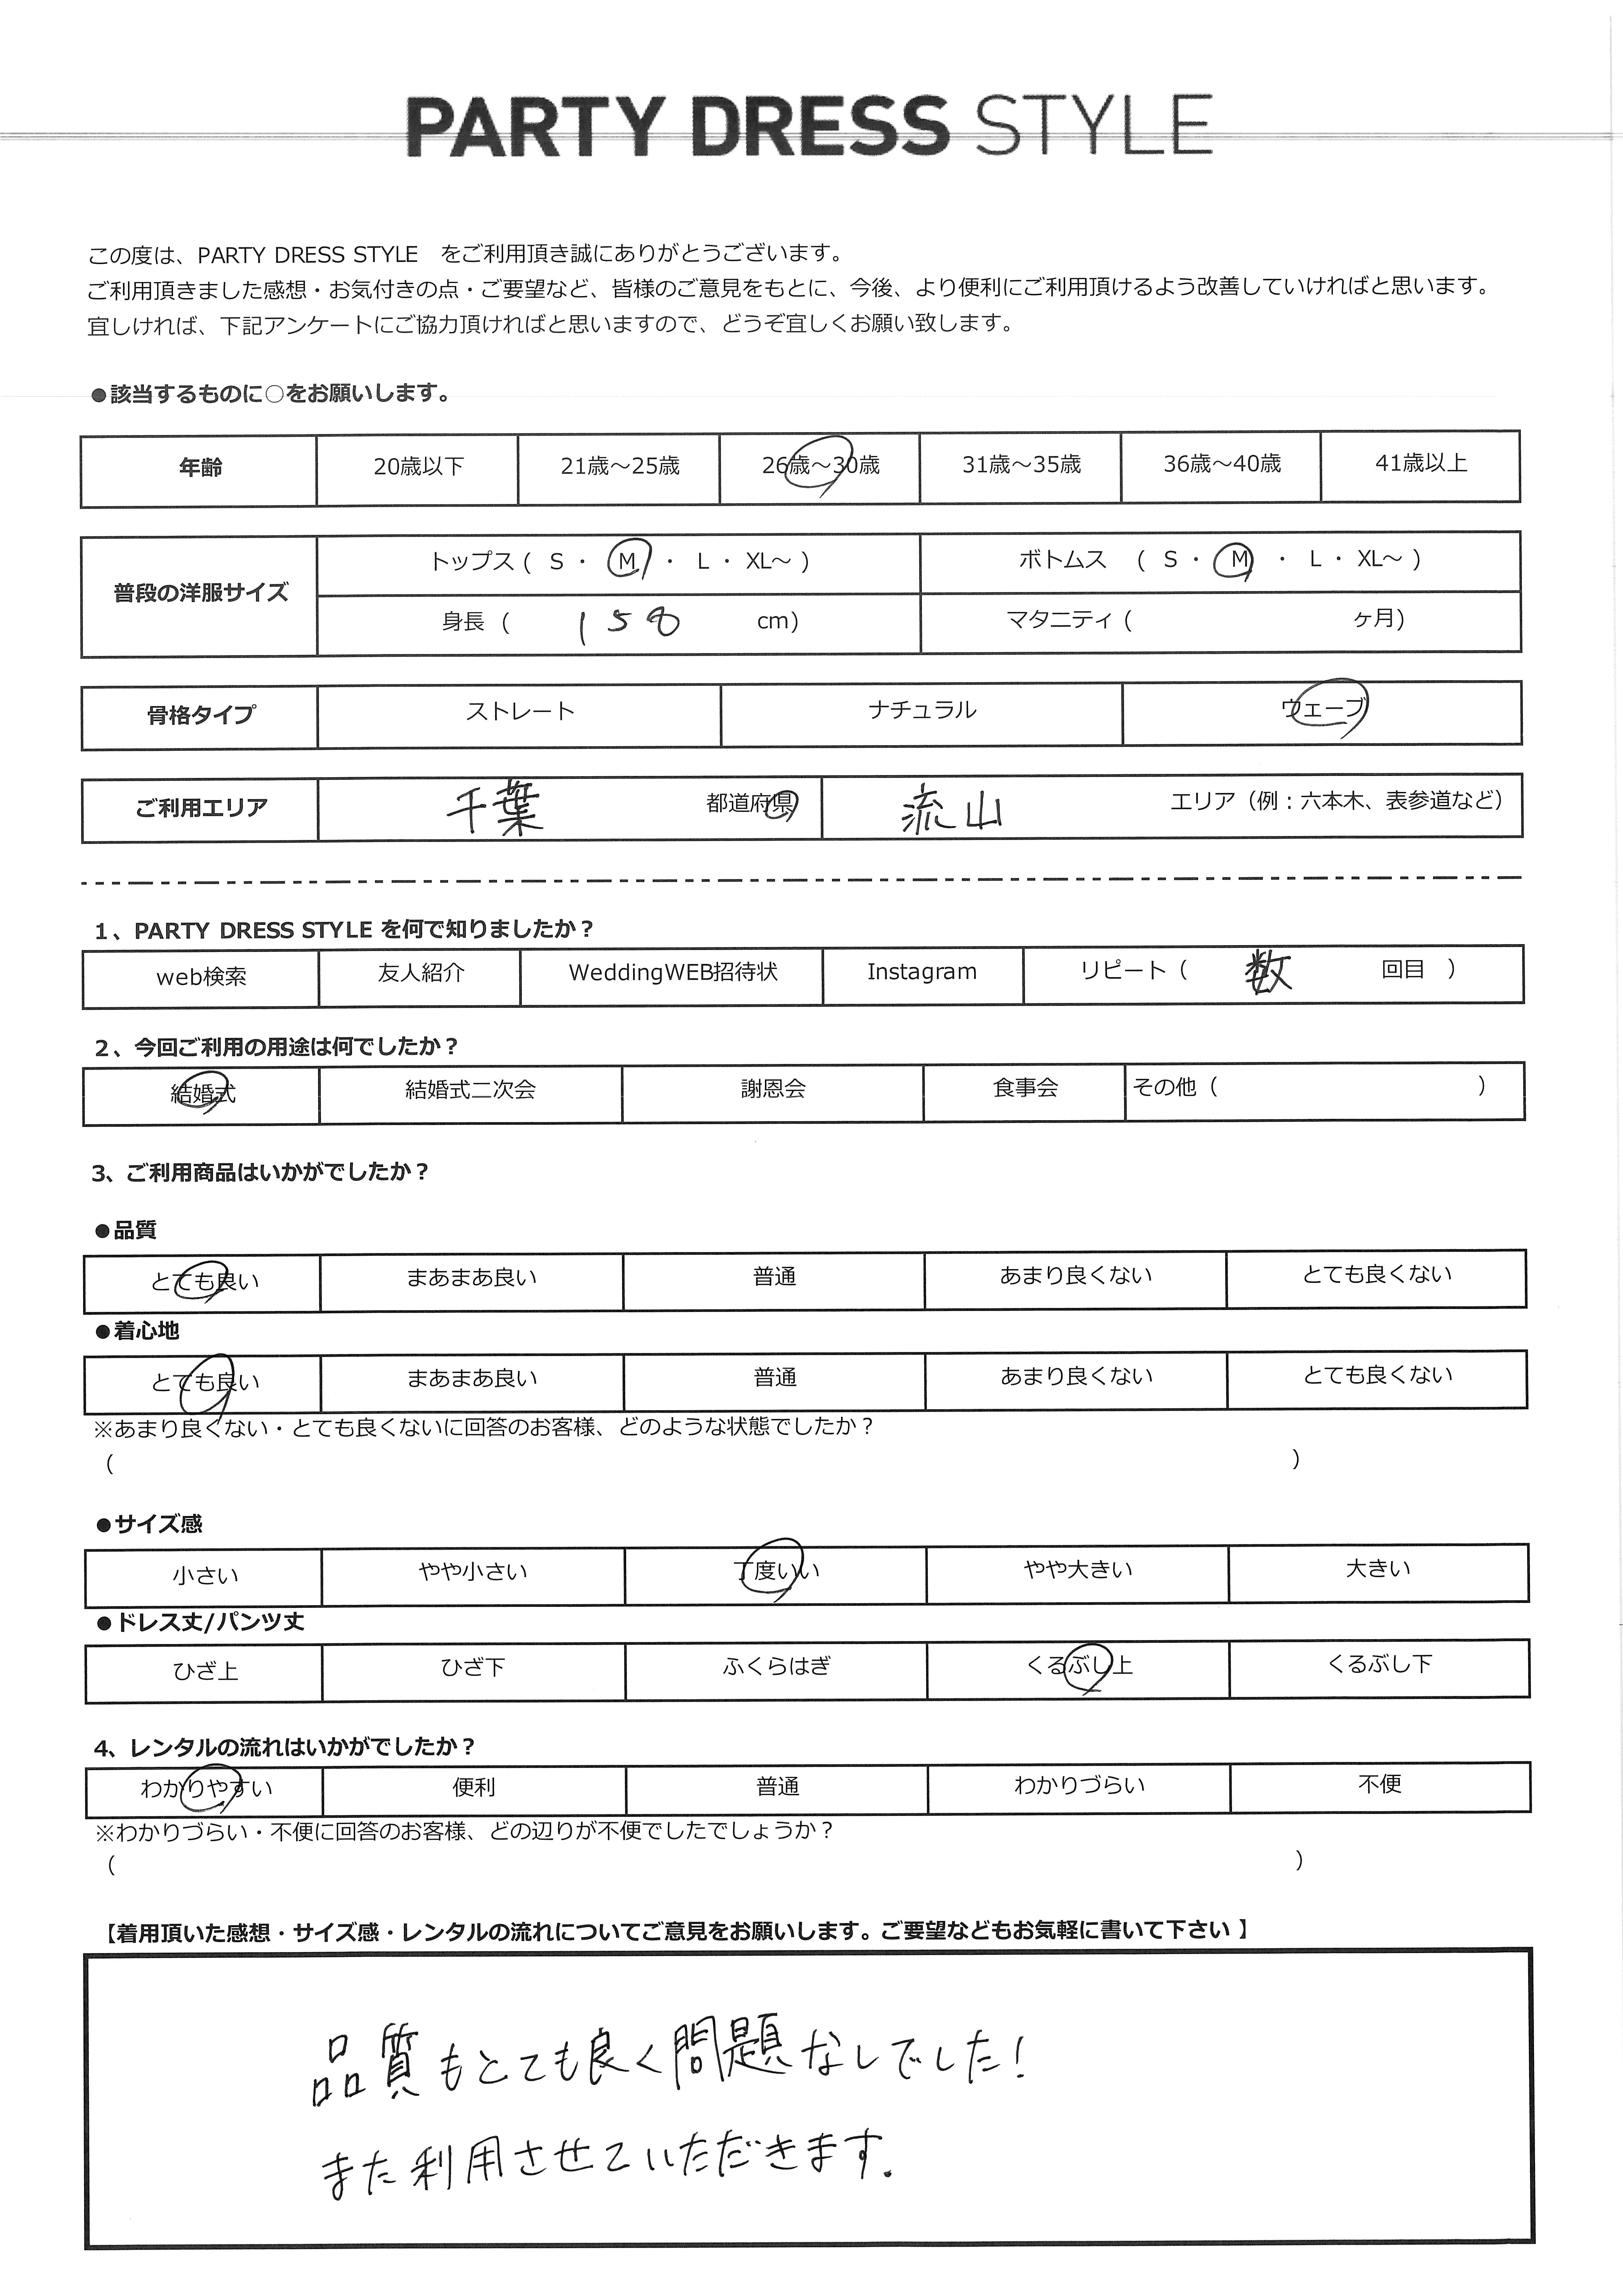 PARTY DRESS STYLE
この度は、PARTY DRESS STYLE　をご利用頂き誠にありがとうございます。
ご利用頂きました感想・お気付きの点・ご要望など、皆様のご意見をもとに、今後、より便利にご利用頂けるよう改善していければと思います。
宜しければ、下記アンケートにご協力頂ければと思いますので、どうぞ宜しくお願い致します。
●該当するものに○をお願いします。
年齢 20歳以下 21歳～25歳 26歳～30歳 31歳～35歳 36歳～40歳 41歳以上
普段の洋服サイズ トップス ( S ・ M ・ L ・ XL～ ) ボトムス ( S ・ M ・ L ・ XL～ )
身長 ( 158 cm) マタニティ ( ヶ月)
骨格タイプ ストレート ナチュラル ウェーブ
ご利用エリア 千葉 都道府県 流山 エリア（例：六本木、表参道など）
1、PARTY DRESS STYLE を何で知りましたか？
web検索 友人紹介 WeddingWEB招待状 Instagram リピート（ 数 回目 ）
2、今回ご利用の用途は何でしたか？
結婚式 結婚式二次会 謝恩会 食事会 その他（ ）
3、ご利用商品はいかがでしたか？
●品質
とても良い まあまあ良い 普通 あまり良くない とても良くない
●着心地
とても良い まあまあ良い 普通 あまり良くない とても良くない
※あまり良くない・とても良くないに回答のお客様、どのような状態でしたか？
（ ）
●サイズ感
小さい やや小さい 丁度いい やや大きい 大きい
●ドレス丈/パンツ丈
ひざ上 ひざ下 ふくらはぎ くるぶし上 くるぶし下
4、レンタルの流れはいかがでしたか？
わかりやすい 便利 普通 わかりづらい 不便
※わかりづらい・不便に回答のお客様、どの辺りが不便でしたでしょうか？
（ ）
【着用頂いた感想・サイズ感・レンタルの流れについてご意見をお願いします。ご要望などもお気軽に書いて下さい 】
品質もとても良く問題なしでした！
また利用させていただきます.